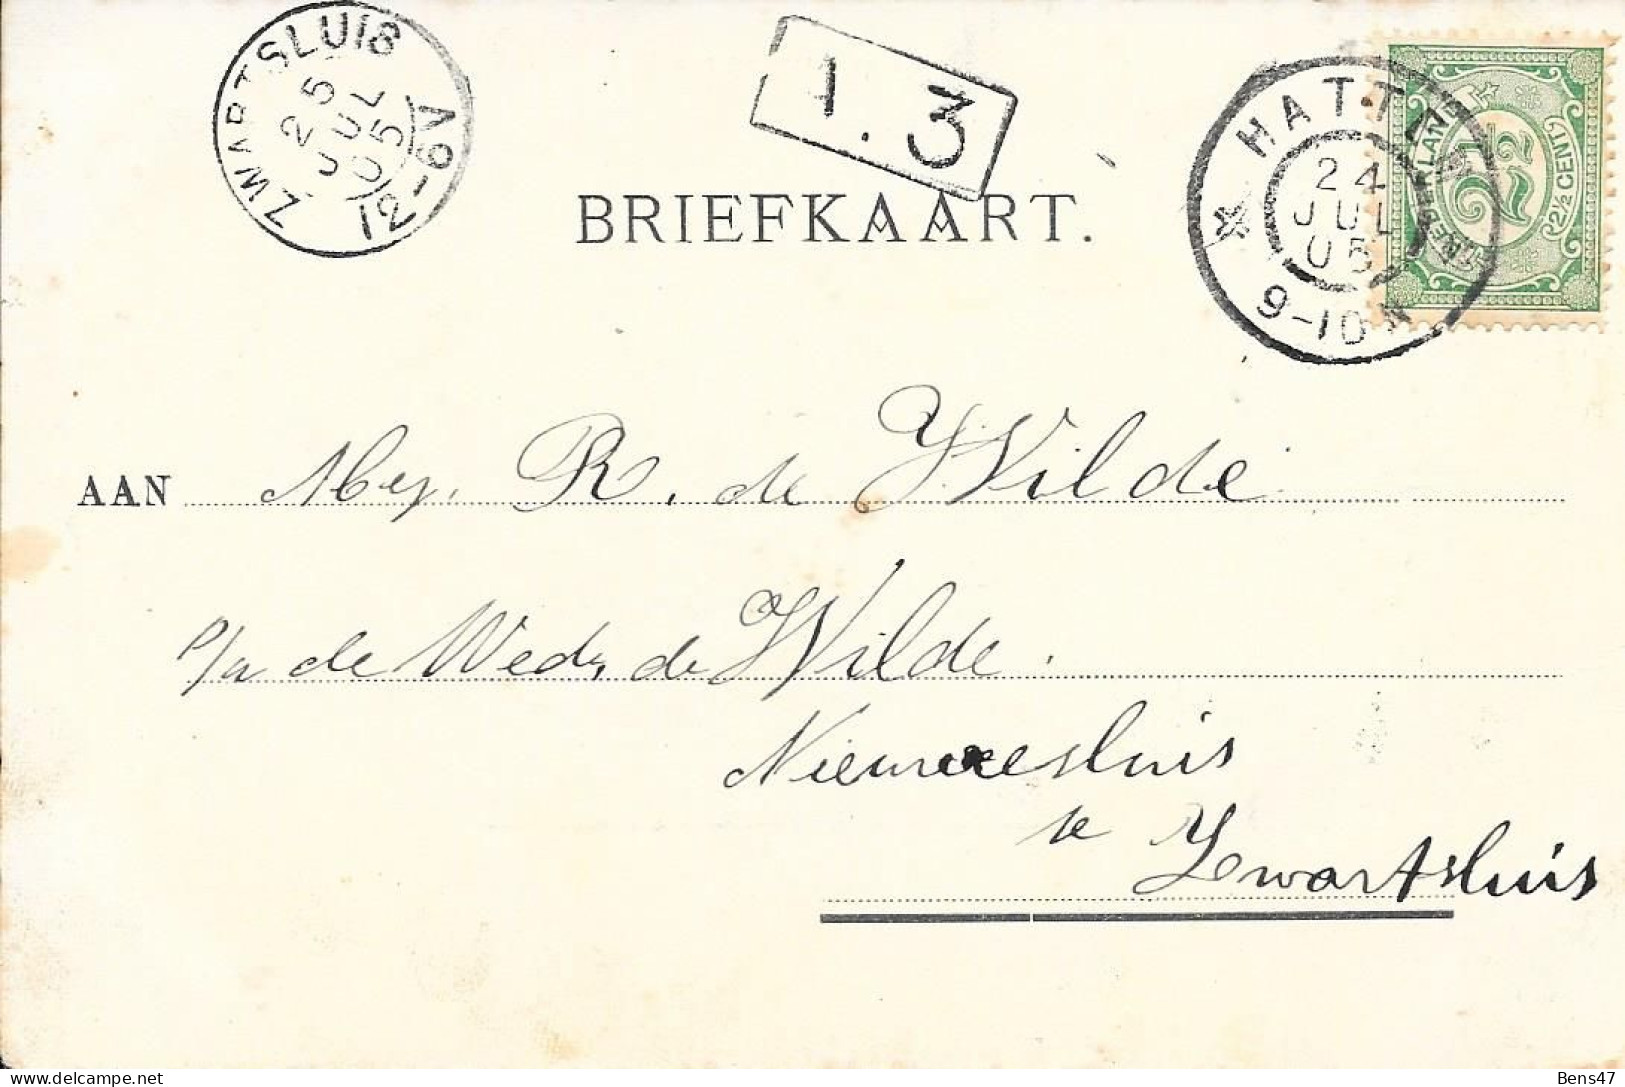 ZWARTSLUIS
25
JUL
05
12-6N
1.3
HATTEM
24
JUL
05
9-10N
NEDERLAND
2½
2½ CENT
BRIEFKAART.
AAN Mej. R. de Wilde
p/a de Wed. de Wilde.
Nieuwesluis
te Zwartsluis
Bens47